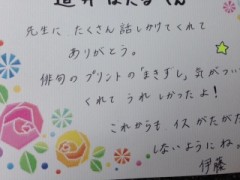 先生に たくさん話しかけてくれて
ありがとう。
俳句のプリントの「まきずし」気がついて
くれて うれしかったよ！
これからも イスがたがた
しないようにね。
伊藤